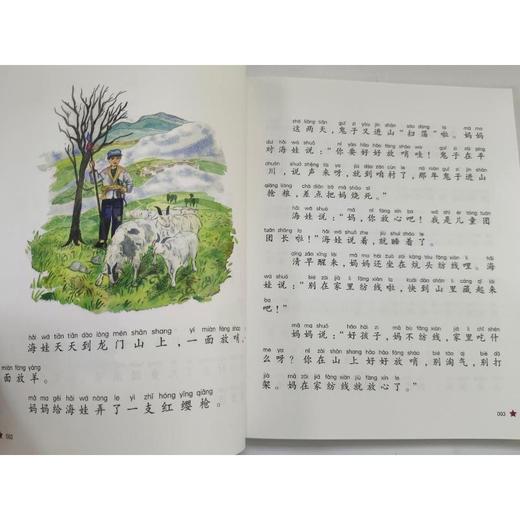 hǎi wá tiān tiān dào lóng mén shān shang yí miàn fàng shào
海娃天天到龙门山上，一面放哨，一
miàn fàng yáng
面放羊。
mā ma gěi hǎi wá nòng le yì zhī hóng yīng qiāng
妈妈给海娃弄了一支红缨枪。
002
zhè liǎng tiān guǐ zi yòu jìn shān sǎo dàng la mā ma
这两天，鬼子又进山“扫荡”啦。妈妈
duì hǎi wá shuō nǐ yào hǎo hǎo fàng shào wa guǐ zi zài píng
对海娃说：“你要好好放哨哇！鬼子在平
chuān shuō shēng lái ya jiù dào zán cūn lā nà nián guǐ zi jìn shān
川，说声来呀，就到咱村了，那年鬼子进山
qiǎng liáng chà diǎn bǎ mā shāo sǐ
抢粮，差点把妈烧死。”
hǎi wá shuō mā nǐ fàng xīn ba wǒ shì ér tóng tuán
海娃说：“妈，你放心吧！我是儿童团
tuán zhǎng la hǎi wá shuō zhe jiù shuì zháo le
团长啦！”海娃说着，就睡着了。
清早醒来，妈妈还坐在炕头纺线哩。海
wá shuō bié zài jiā lǐ fǎng xiàn la kuài dào shān lǐ cáng qǐ lái
娃说：“别在家里纺线啦，快到山里藏起来
ba
吧！”
mā ma shuō hǎo hái zi mā bù fǎng xiàn jiā lǐ chī shén
妈妈说：“好孩子，妈不纺线，家里吃什
me ya nǐ zài shān shang hǎo hǎo fàng shào bié táo qì bié dǎ
么呀？你在山上好好放哨，别淘气，别打
jià mā zài jiā fǎng xiàn jiù fàng xīn le
架。妈在家纺线就放心了。”
003